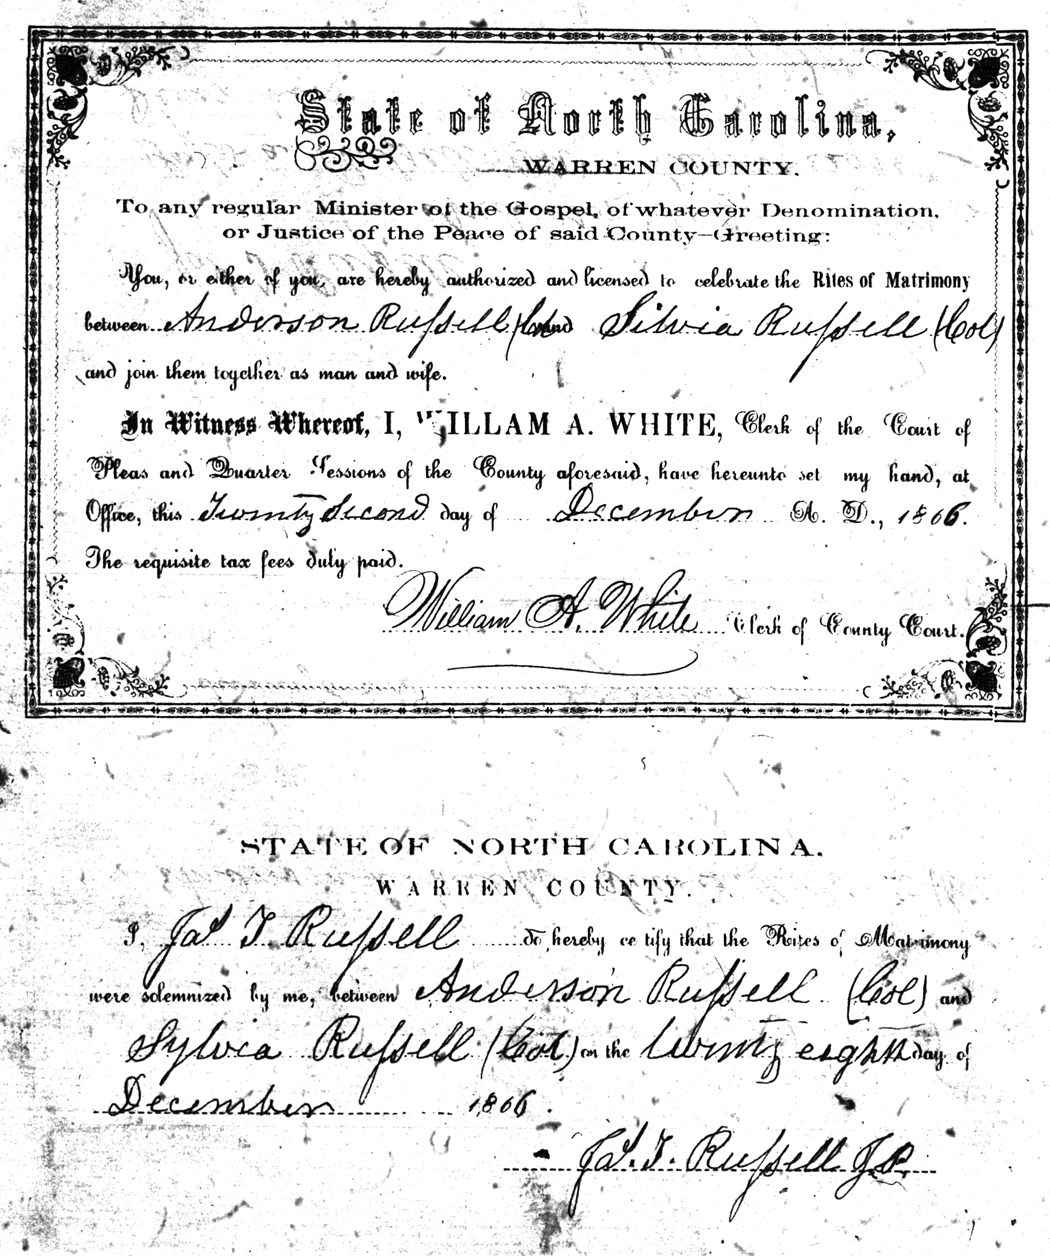 State of North Carolina,
WARREN COUNTY.
To any regular Minister of the Gospel, of whatever Denomination,
or Justice of the Peace of said County—Greeting:
You, or either of you, are hereby authorized and licensed to celebrate the Rites of Matrimony
between Anderson Russell (Col) and Silvia Russell (Col)
and join them together as man and wife.
In Witness Whereof, I, WILLAM A. WHITE, Clerk of the Court of
Pleas and Quarter Sessions of the County aforesaid, have hereunto set my hand, at
Office, this Twenty Second day of December A. D., 1866.
The requisite tax fees duly paid.
William A. White Clerk of County Court.
STATE OF NORTH CAROLINA.
WARREN COUNTY.
I, Jas T Russell do hereby certify that the Rites of Matrimony
were solemnized by me, between Anderson Russell (Col) and
Sylvia Russell (Col) on the twenty eighth day of
December 1866.
Jas. T. Russell J.P.